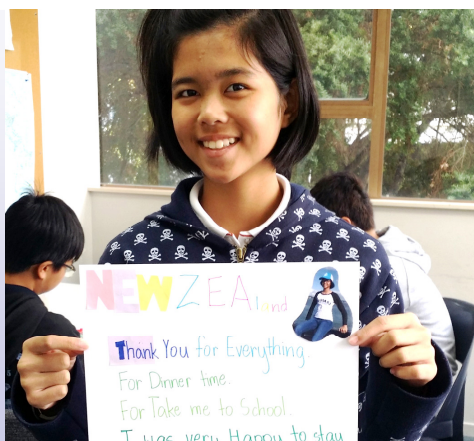 NEW ZEAland
Thank You for Everything.
For Dinner time.
For Take me to School.
I was very Happy to stay